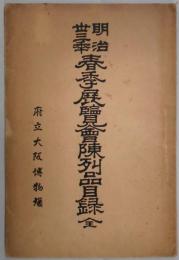 明治
卅三年
春季展覽會陳列品目録 全
府立大阪博物場